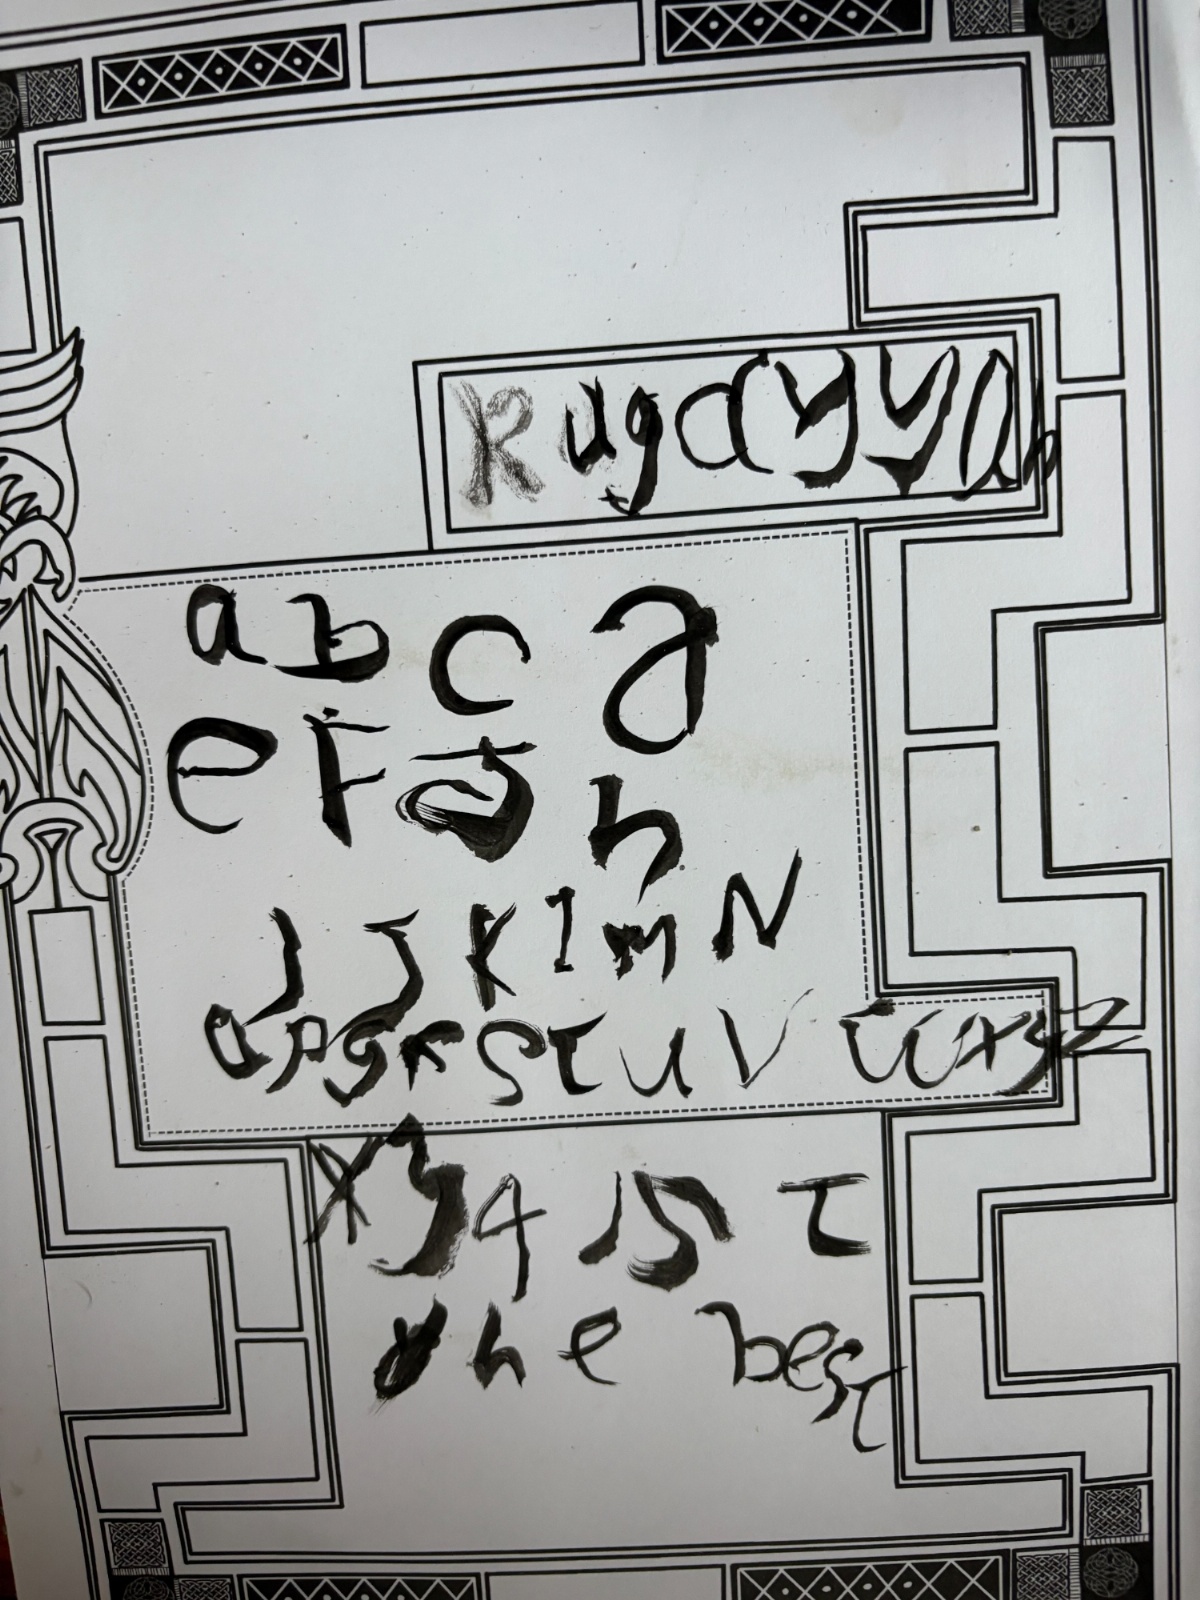 Rugayyah
a b c d
e F G h
J J K I m N
o p q r s t u v w x y z
the best